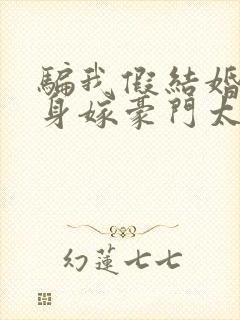 騙我假結婚
身嫁豪門太
幻蓮七七